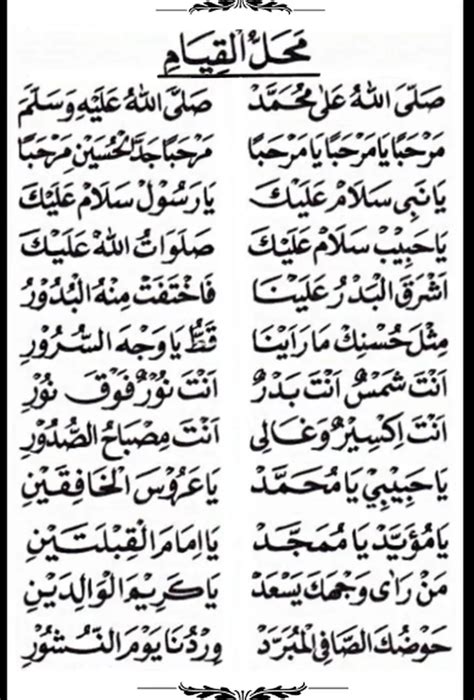 مَحَلُّ الْقِيَامِ
صَلَّى اللهُ عَلَى مُحَمَّدْ صَلَّى اللهُ عَلَيْهِ وَسَلَّمَ
مَرْحَبًا يَا مَرْحَبًا يَا مَرْحَبًا مَرْحَبًا جَدَّ الْحُسَيْنِ مَرْحَبًا
يَا نَبِى سَلَامْ عَلَيْكَ يَا رَسُوْل سَلَامْ عَلَيْكَ
يَا حَبِيْبْ سَلَامْ عَلَيْكَ صَلَوَاتُ اللهْ عَلَيْكَ
اَشْرَقَ الْبَدْرُ عَلَيْنَا فَاخْتَفَتْ مِنْهُ الْبُدُوْرُ
مِثْلَ حُسْنِكَ مَا رَاَيْنَا قَطُّ يَا وَجْهَ السُّرُوْرِ
اَنْتَ شَمْسٌ اَنْتَ بَدْرٌ اَنْتَ نُوْرٌ فَوْقَ نُوْرٍ
اَنْتَ اِكْسِيْرٌ وَغَالِى اَنْتَ مِصْبَاحُ الصُّدُوْرِ
يَا حَبِيْبِيْ يَا مُحَمَّدْ يَا عَرُوْسَ الْخَافِقَيْنِ
يَا مُؤَيَّدْ يَا مُمَجَّدْ يَا اِمَامَ الْقِبْلَتَيْنِ
مَنْ رَاٰى وَجْهَكَ يَسْعَدْ يَا كَرِيْمَ الْوَالِدَيْنِ
حَوْضُكَ الصَّافِى الْمُبَرَّدْ وِرْدُنَا يَوْمَ النُّشُوْرِ